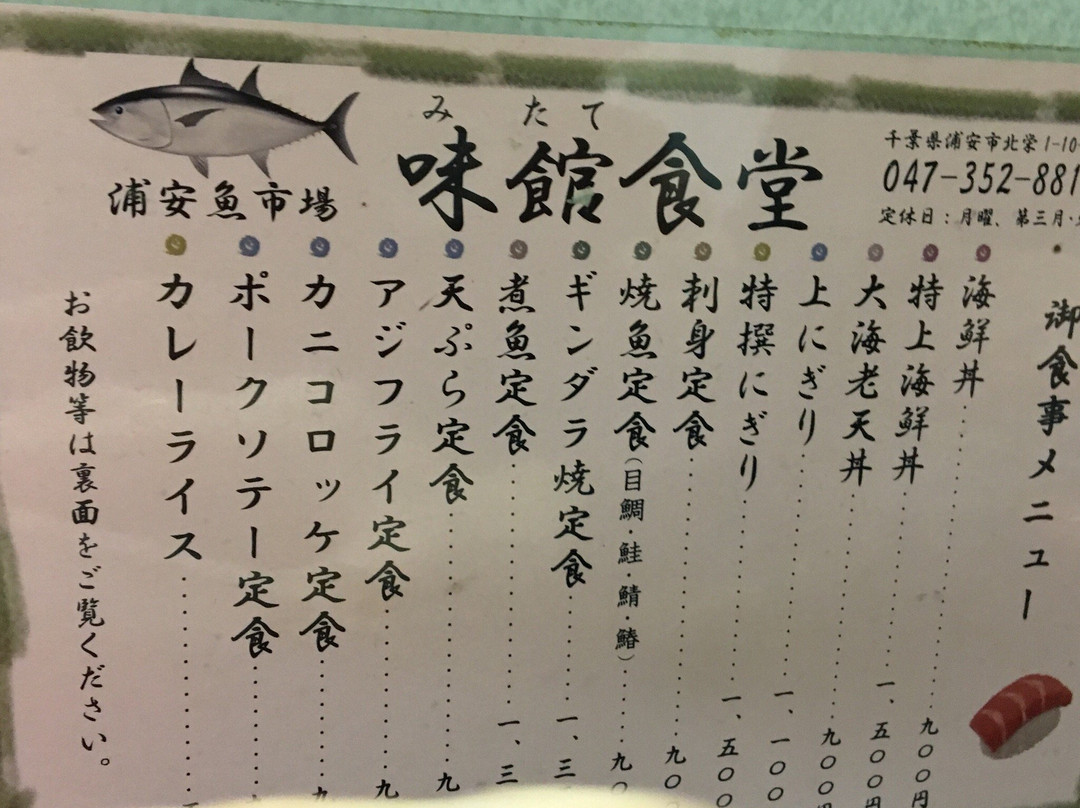 浦安魚市場
みたて
味館食堂
千葉県浦安市北栄1-10-
047-352-881
定休日：月曜、第三月・
御食事メニュー
海鮮丼 九〇〇円
特上海鮮丼 一、五〇〇円
大海老天丼 九〇〇円
上にぎり 一、一〇〇
特撰にぎり 一、五〇〇
刺身定食 九〇
焼魚定食（目鯛・鮭・鯖・鰆） 九〇
ギンダラ焼定食 一、三
煮魚定食 一、三
天ぷら定食 九
アジフライ定食 九
カニコロッケ定食
ポークソテー定食
カレーライス
お飲物等は裏面をご覧ください。